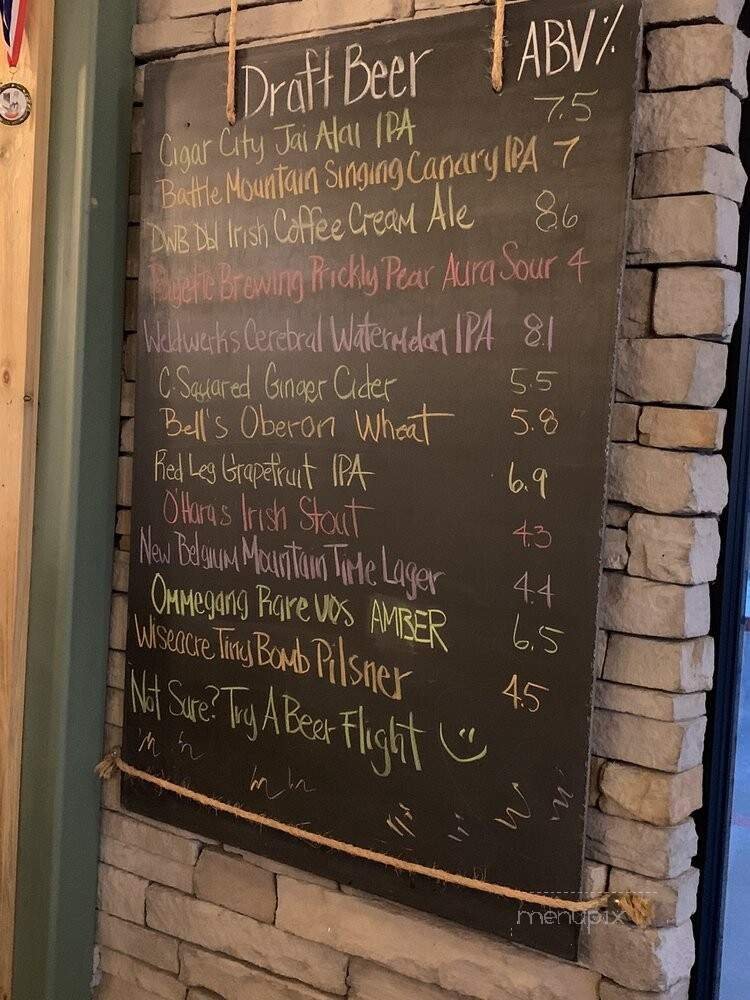 Draft Beer ABV%
Cigar City Jai Alai IPA 7.5
Battle Mountain Singing Canary IPA 7
DWB Dbl Irish Coffee Cream Ale 8.6
Brewing Prickly Pear Aura Sour 4
Weldwerks Cerebral Watermelon IPA 8.1
C-Squared Ginger Cider 5.5
Bell's Oberon Wheat 5.8
Red Leg Grapefruit IPA 6.9
O'Hara's Irish Stout 4.3
New Belgium Mountain Time Lager 4.4
Ommegang Rare VOS AMBER 6.5
Wiseacre Tiny Bomb Pilsner 4.5
Not Sure? Try A Beer Flight
menupix